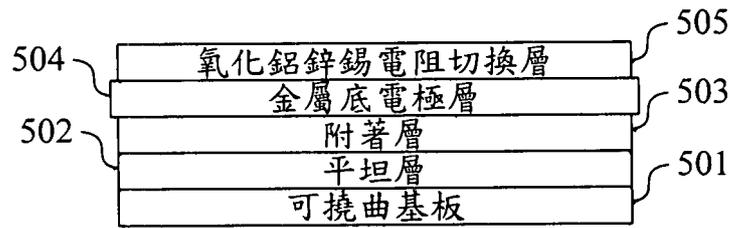 505
氧化鋁鋅錫電阻切換層
504
金屬底電極層
503
附著層
502
平坦層
501
可撓曲基板